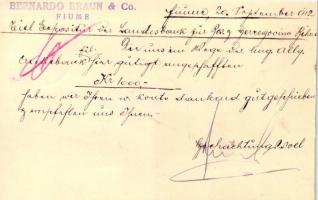 BERNARDO BRAUN & Co.
FIUME
Fiume 20. September 912
Titl. Expositur der Landesbank für
Der uns im Wege der Ung. Allg.
Creditbank hier gütigst angeschafften
Kr 1000.-
haben wir Ihnen in Konto dankend gutgeschrieben
empfehlen uns Ihnen
Hochachtungsvoll